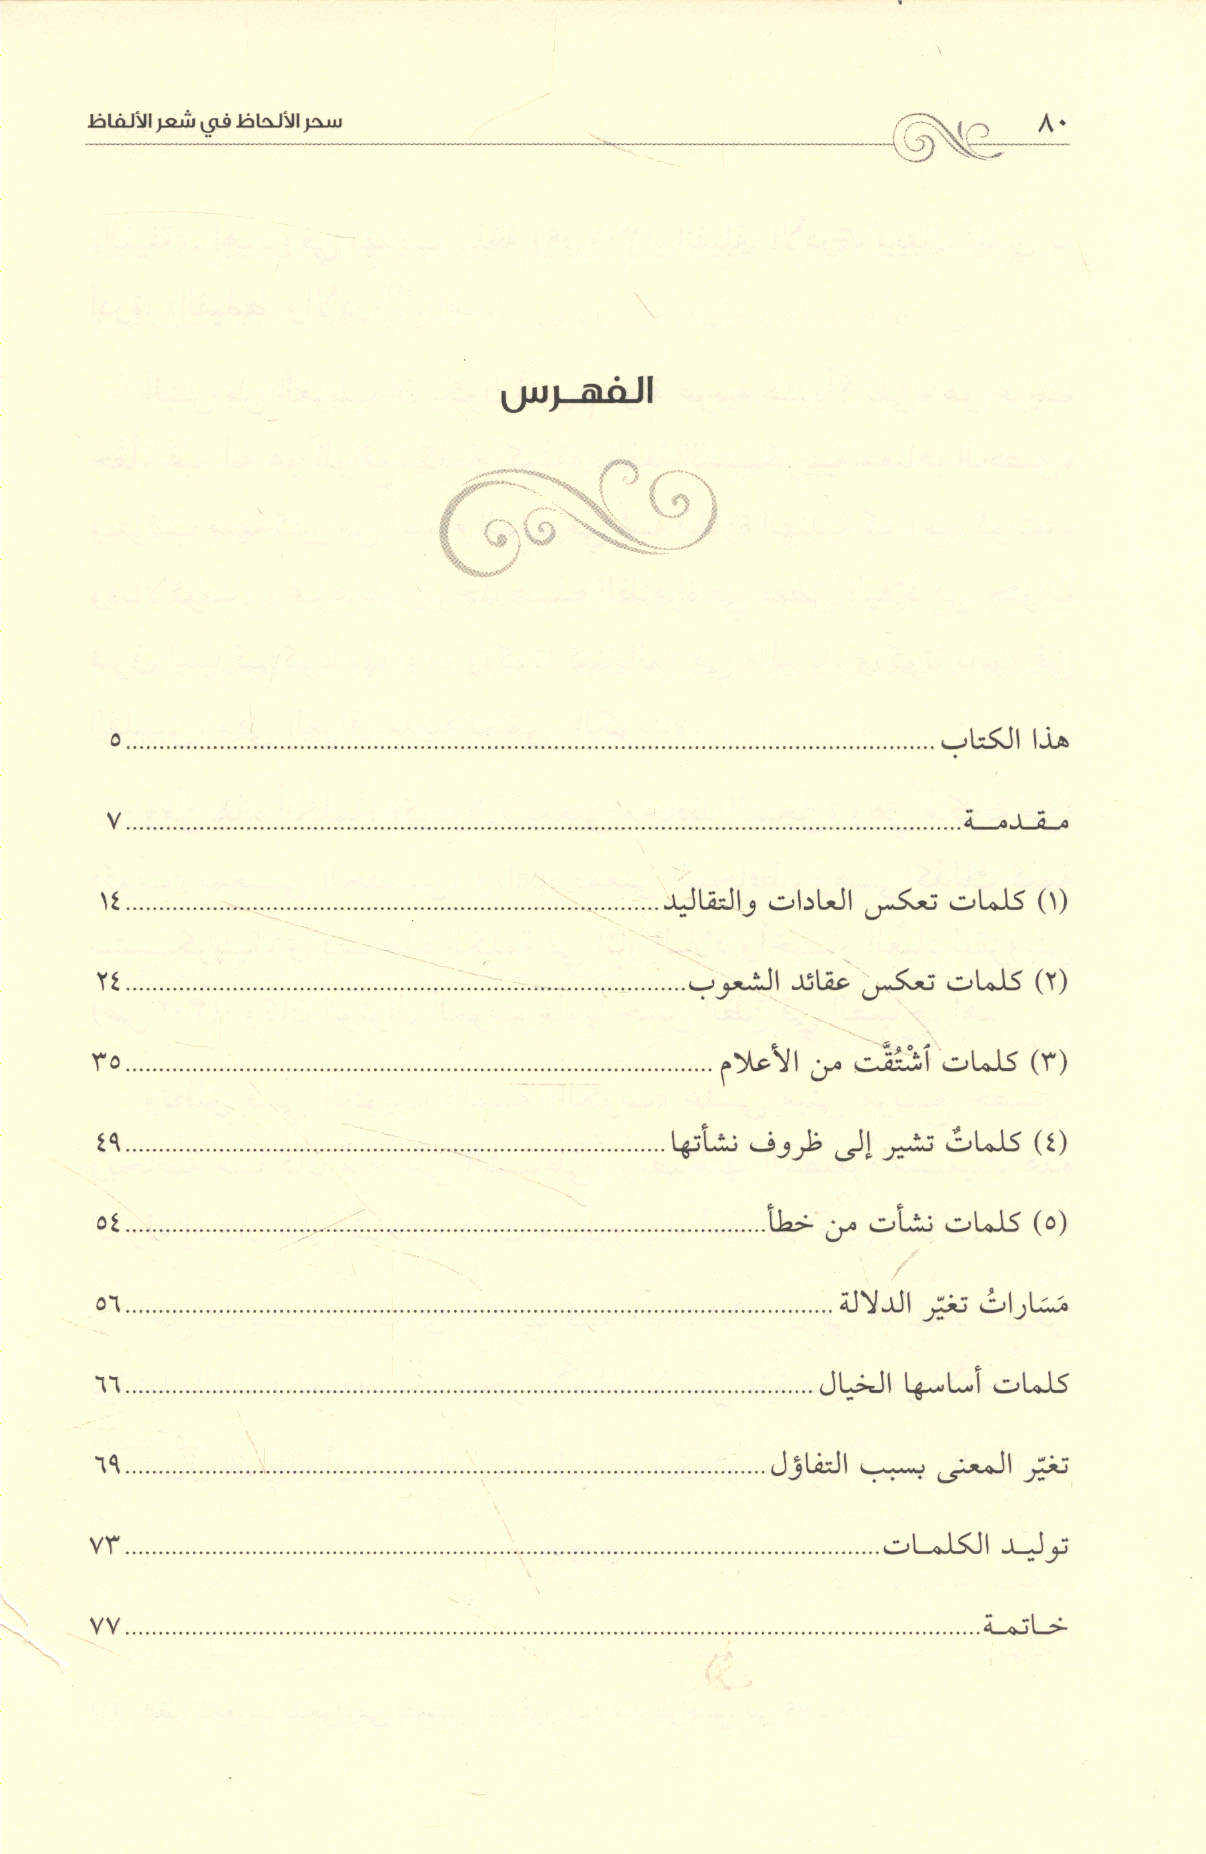 ٨٠ سحر الألحاظ في شعر الألفاظ
الفهرس
هذا الكتاب ٥
مقدمة ٧
(١) كلمات تعكس العادات والتقاليد ١٤
(٢) كلمات تعكس عقائد الشعوب ٢٤
(٣) كلمات ٱشْتُقَّت من الأعلام ٣٥
(٤) كلماتٌ تشير إلى ظروف نشأتها ٤٩
(٥) كلمات نشأت من خطأ ٥٤
مَسَاراتُ تغيّر الدلالة ٥٦
كلمات أساسها الخيال ٦٦
تغيّر المعنى بسبب التفاؤل ٦٩
توليد الكلمات ٧٣
خاتمة ٧٧